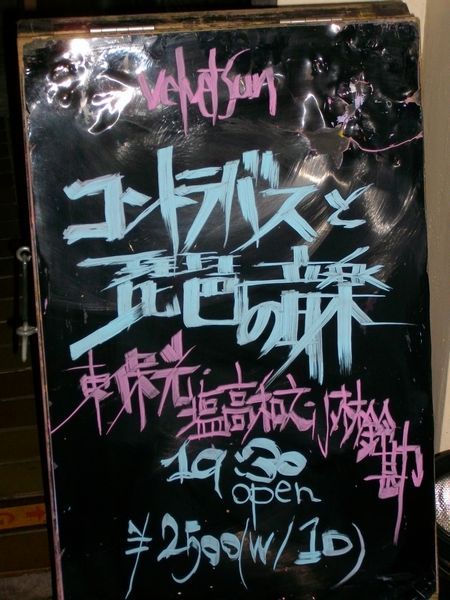 velvetsun
コントラバスと
琵琶の
東保光・塩高和之・小林鈴勘
19:30
open
¥2500(w/1D)